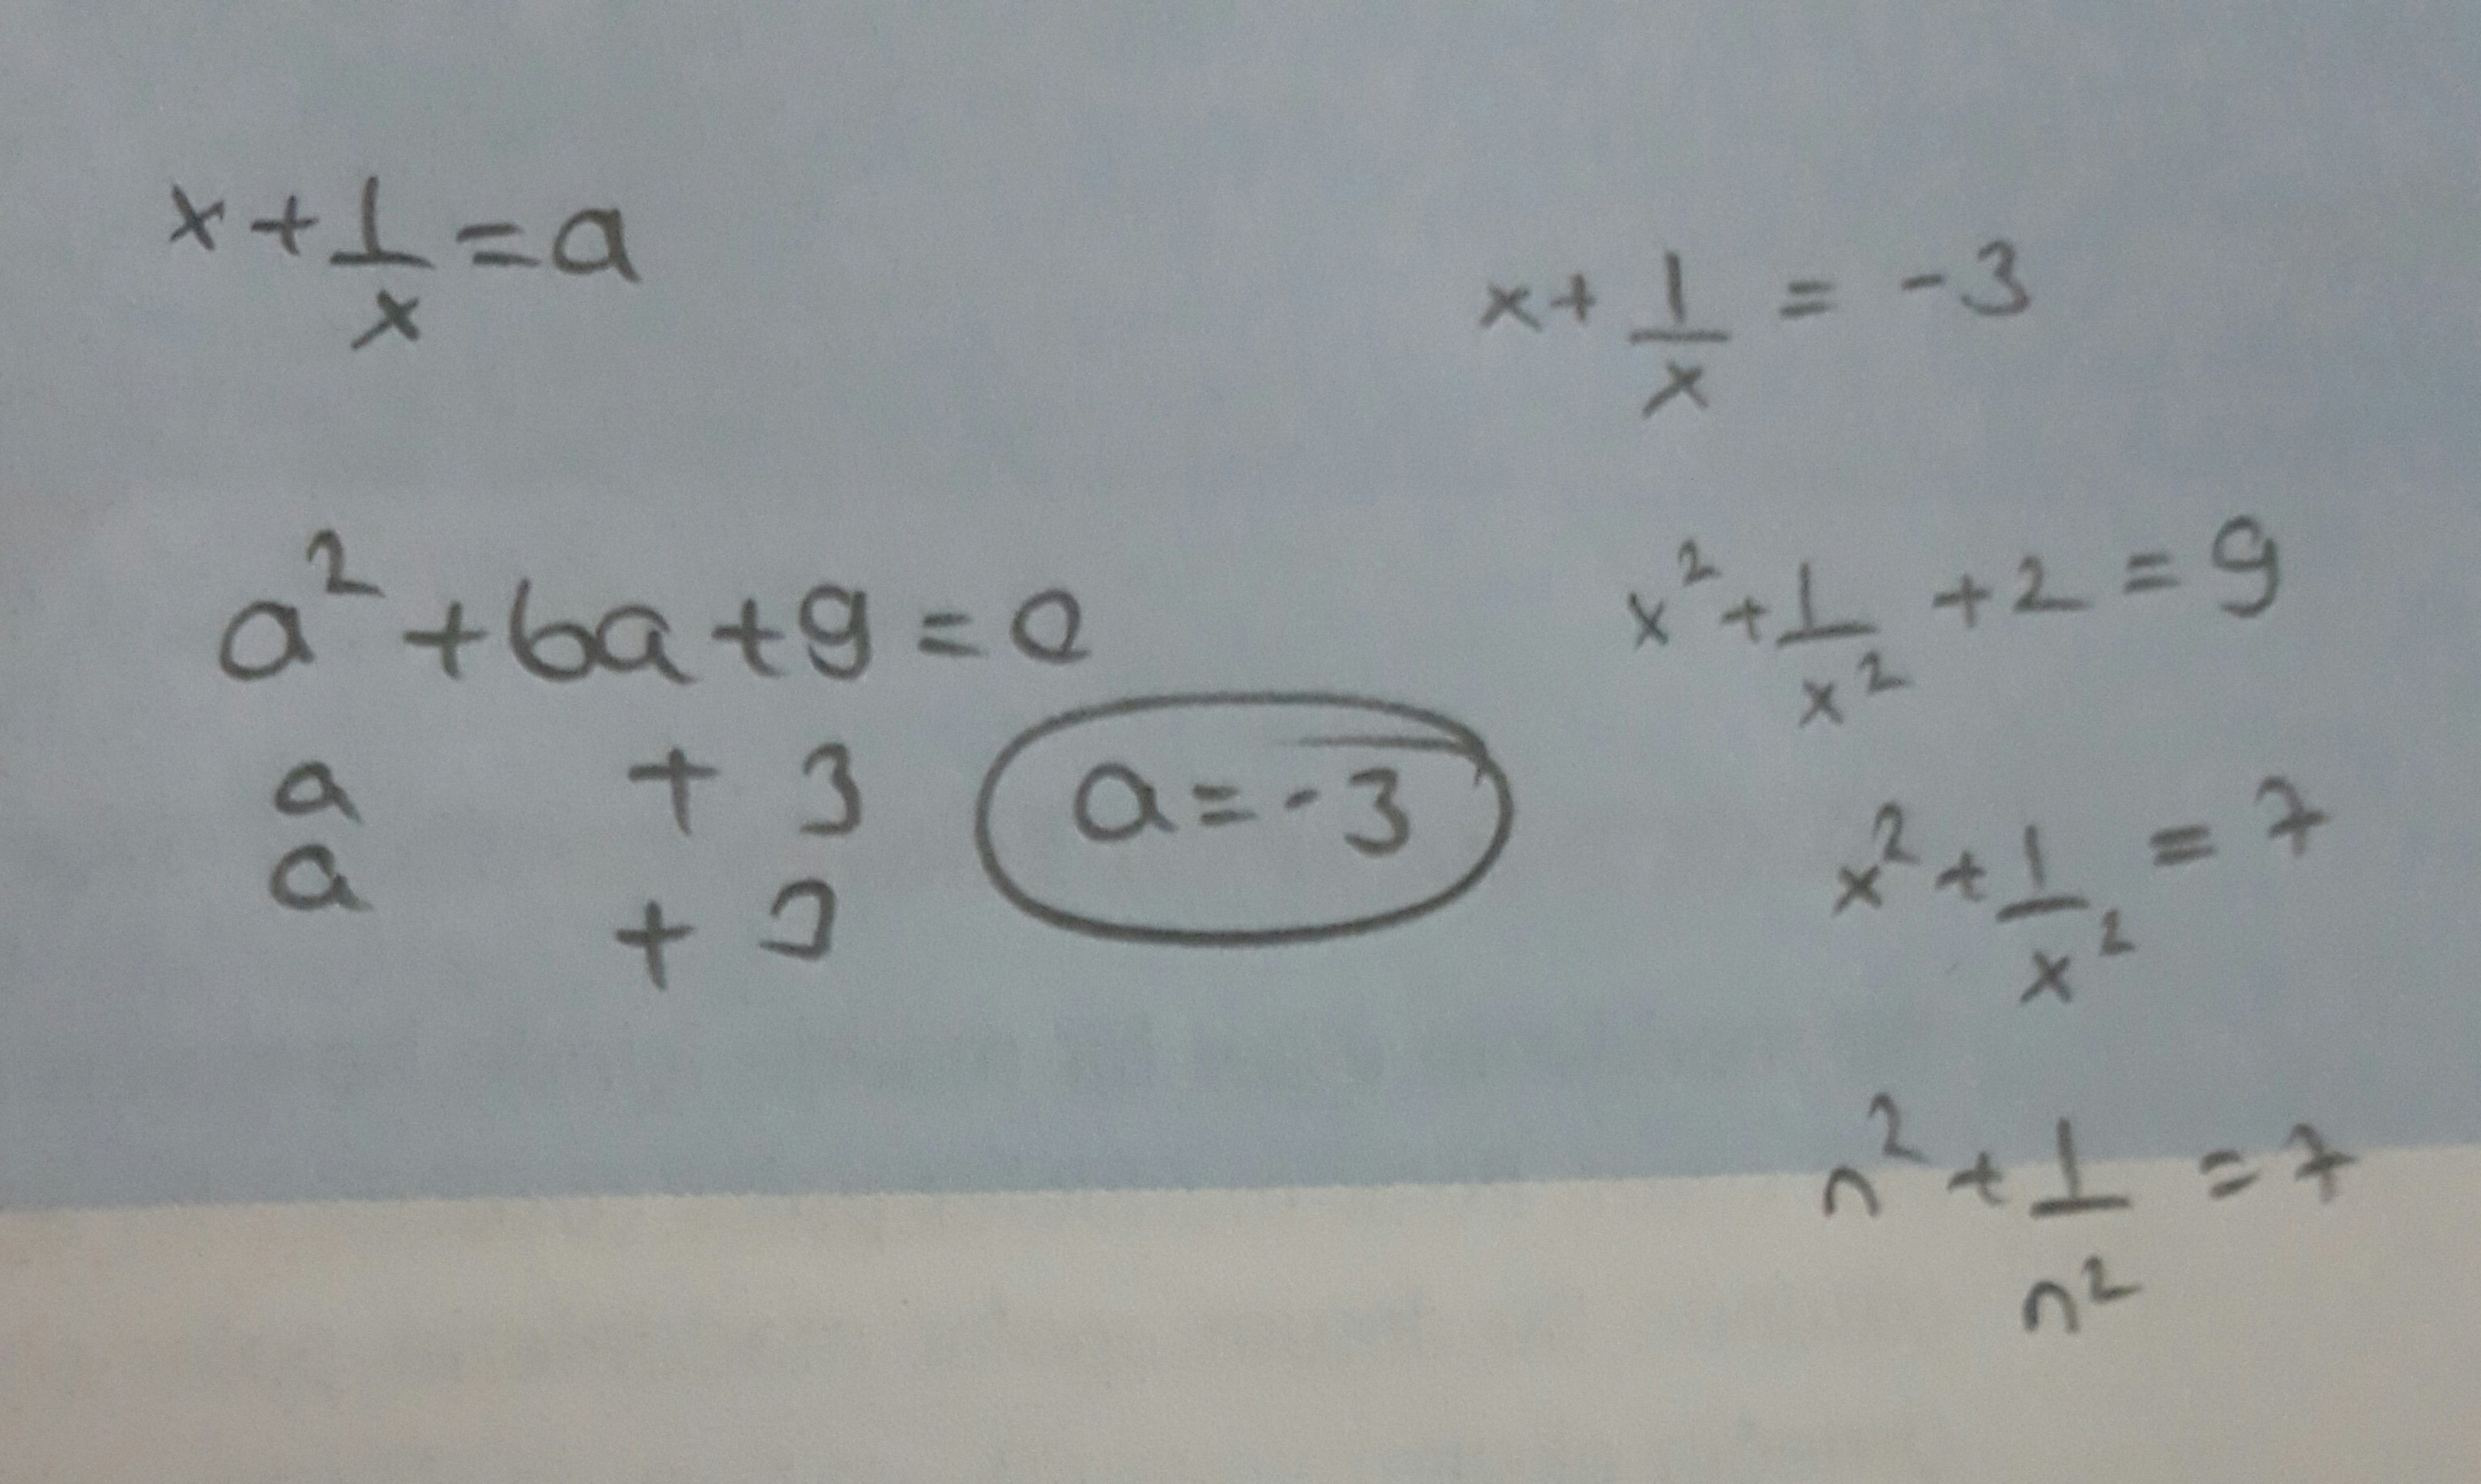 x + 1/x = a
a² + 6a + 9 = 0
a + 3
a + 3
a = -3
x + 1/x = -3
x² + 1/x² + 2 = 9
x² + 1/x² = 7
n² + 1/n² = 7